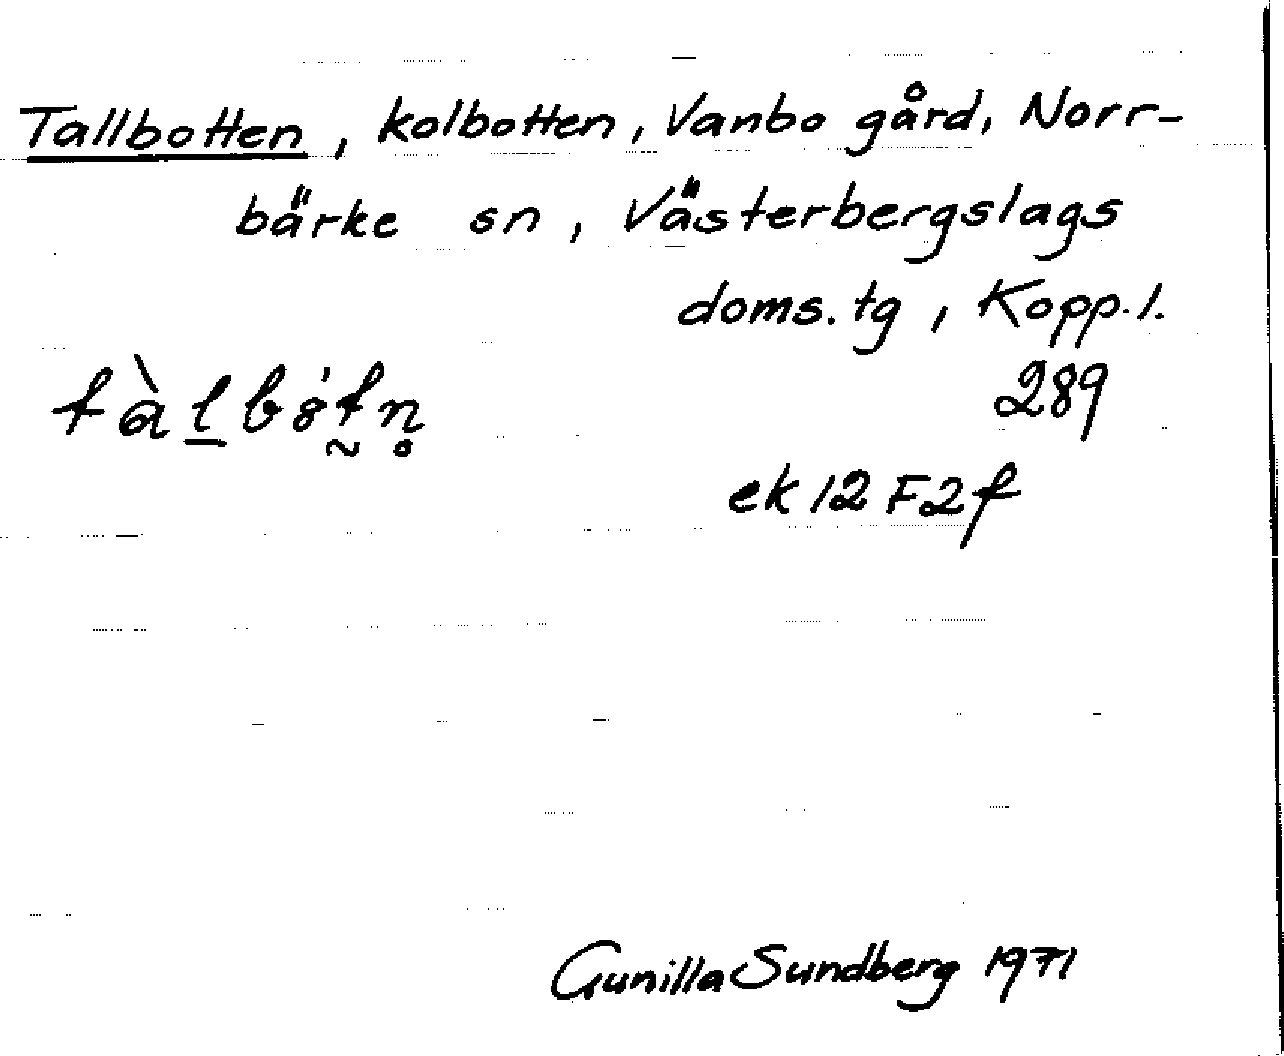 Tallbotten, kolbotten, Vanbo gård, Norr-
bärke sn, Västerbergslags
doms. tg, Kopp. l.
289
ek 12 F2f
Gunilla Sundberg 1971